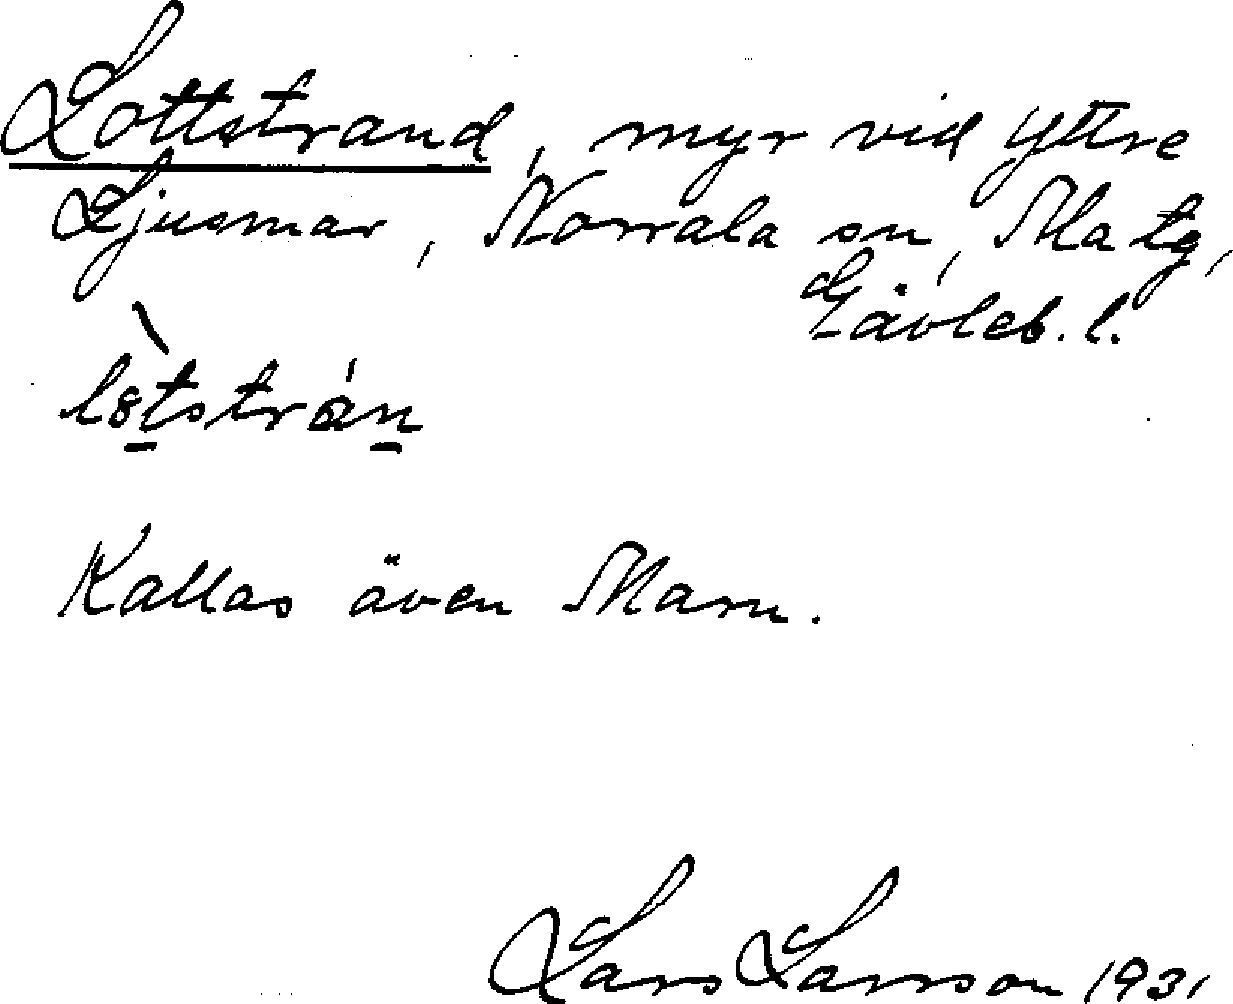 Lottstrand, myr vid Yttre
Ljusmar, Norrala sn, Ma tg,
Gävleb. l.
lòtstrán
Kallas även Marn.
Lars Larsson 1931